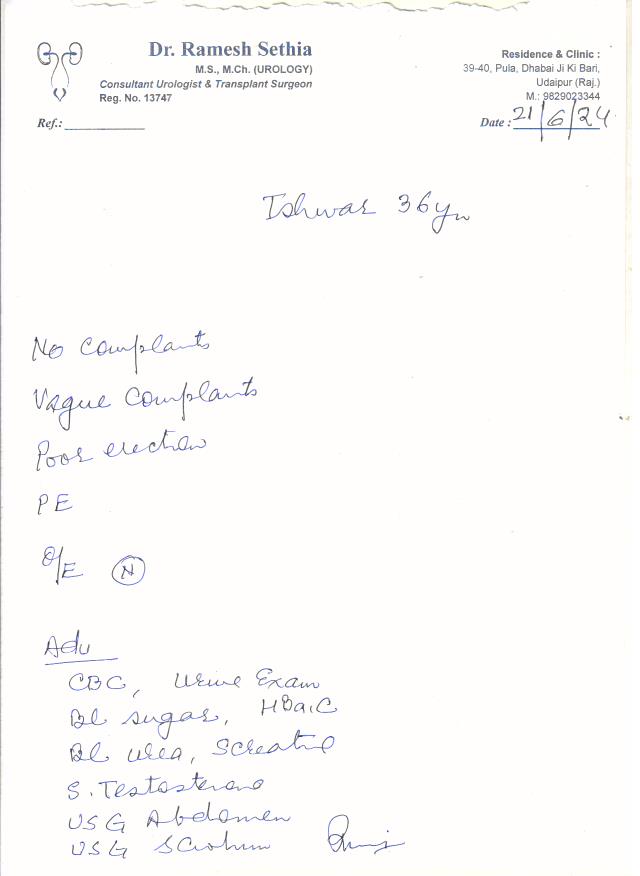 Dr. Ramesh Sethia
M.S., M.Ch. (UROLOGY)
Consultant Urologist & Transplant Surgeon
Reg. No. 13747
Ref.:
Residence & Clinic :
39-40, Pula, Dhabai Ji Ki Bari,
Udaipur (Raj.)
M.: 9829023344
Date : 21/6/24
Ishwar 36yrs
No Complants
Vague Complants
Poor erection
PE
O/E (N)
Adv
CBC, Urine Exam
Bl sugar, HBA1C
Bl urea, S Creatine
S. Testosterone
USG Abdomen
USG Scrotum